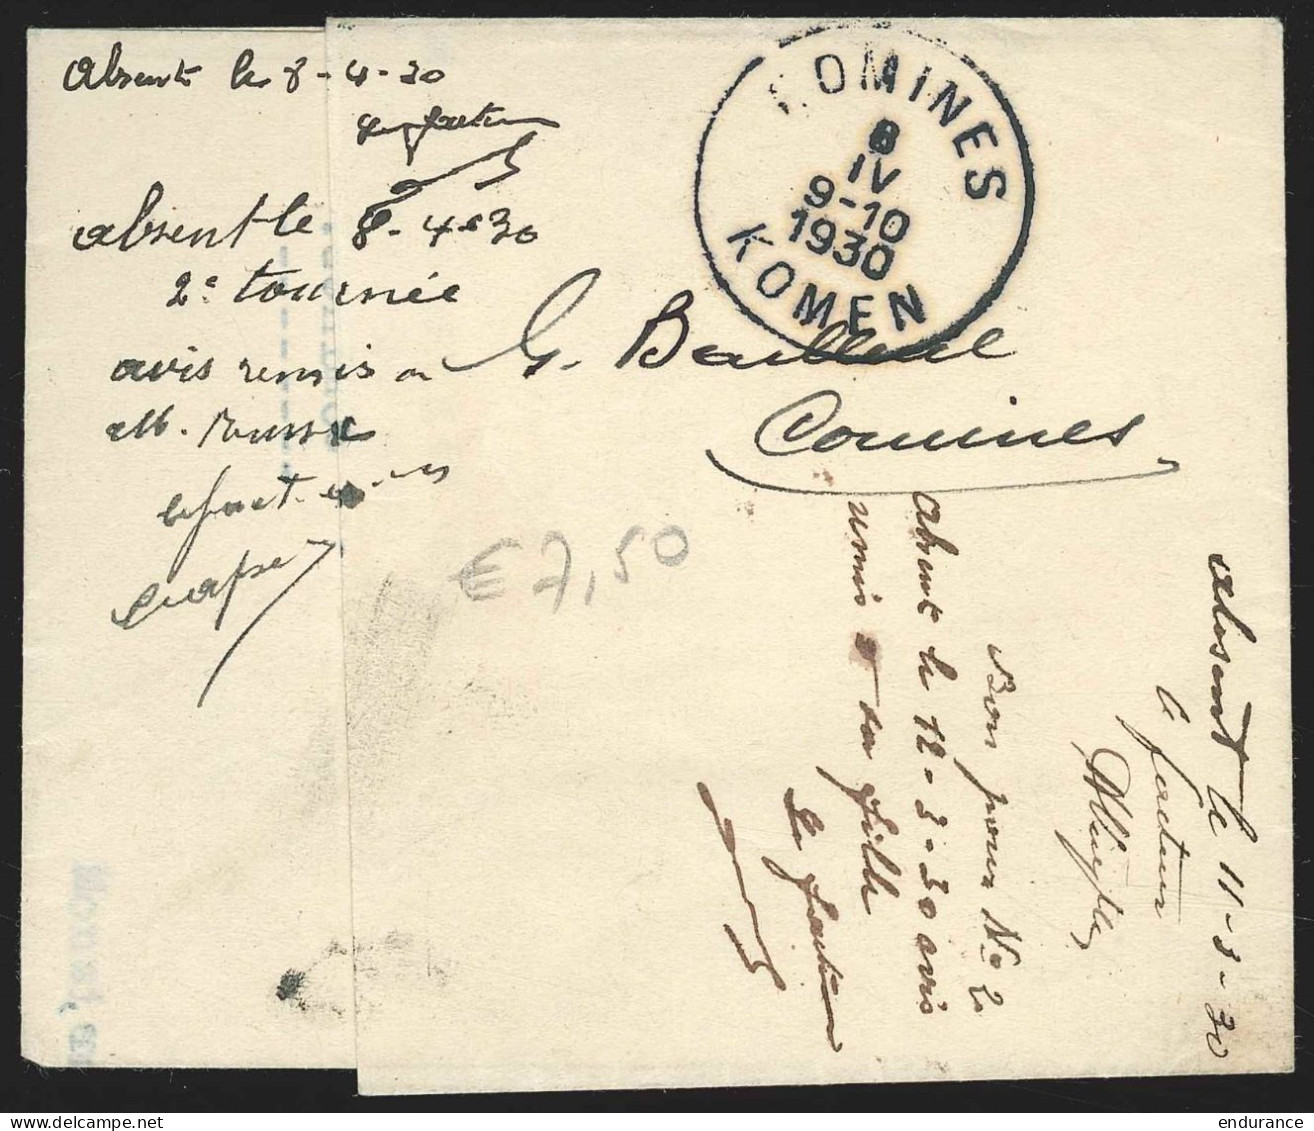 Absent le 8-4-30
le facteur
absent le 8-4-30
2e tournée
avis remis a
le facteur
COMINES
8
IV
9-10
1930
KOMEN
G. Bailleul
Comines
€ 7,50
absent le 11-3-30
le facteur
Bon pour No 2
Absent le 12-3-30 avis
remis à sa fille
Le facteur
endurance